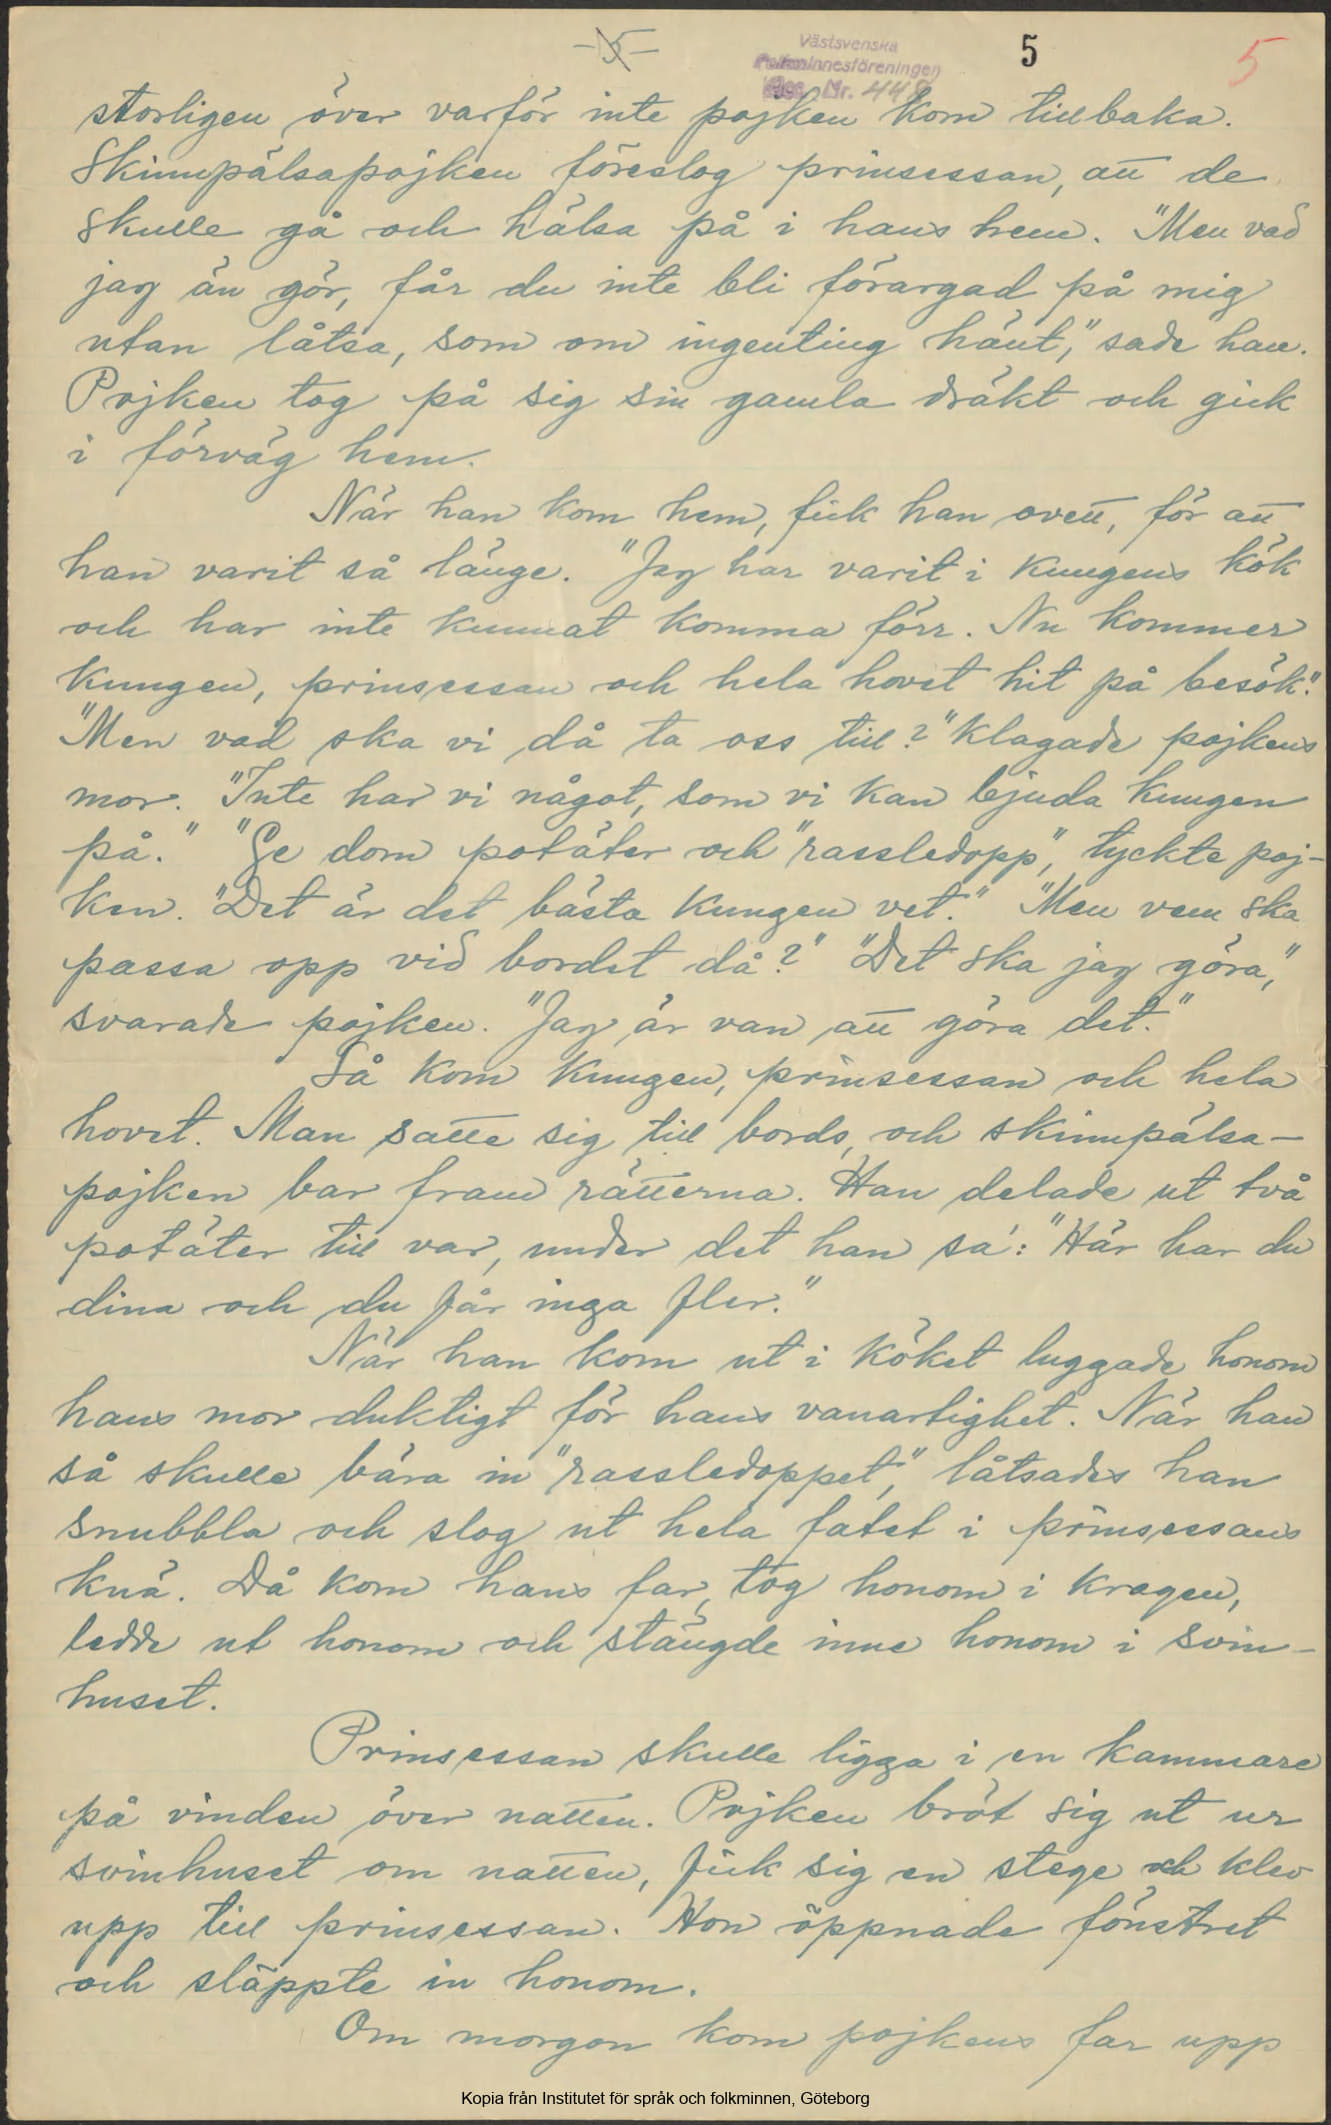 -5-
Västsvenska
Folkminnesföreningen
Acc. Nr. 448
5
5
storligen över varför inte pojken kom tillbaka.
Skinnpälsapojken föreslog prinsessan, att de
skulle gå och hälsa på i hans hem. "Men vad
jag än gör, får du inte bli förargad på mig
utan låtsa, som om ingenting hänt," sade han.
Pojken tog på sig sin gamla dräkt och gick
i förväg hem.
När han kom hem, fick han ovett, för att
han varit så länge. "Jag har varit i kungens kök
och har inte kunnat komma förr. Nu kommer
kungen, prinsessan och hela hovet hit på besök."
"Men vad ska vi då ta oss till?" klagade pojkens
mor. "Inte har vi något, som vi kan bjuda kungen
på." "Ge dom potäter och "rassledopp", tyckte poj-
ken. "Det är det bästa kungen vet." "Men vem ska
passa opp vid bordet då?" "Det ska jag göra,"
svarade pojken. "Jag är van att göra det."
Så kom kungen, prinsessan och hela
hovet. Man satte sig till bords, och skinnpälsa-
pojken bar fram rätterna. Han delade ut två
potäter till var, under det han sa': "Här har du
dina och du får inga fler."
När han kom ut i köket luggade honom
hans mor duktigt för hans vanartighet. När han
så skulle bära in "rassledoppet," låtsades han
snubbla och slog ut hela fatet i prinsessans
knä. Då kom hans far, tog honom i kragen,
ledde ut honom och stängde inne honom i svin-
huset.
Prinsessan skulle ligga i en kammare
på vinden över natten. Pojken bröt sig ut ur
svinhuset om natten, fick sig en stege och klev
upp till prinsessan. Hon öppnade fönstret
och släppte in honom.
Om morgon kom pojkens far upp
Kopia från Institutet för språk och folkminnen, Göteborg